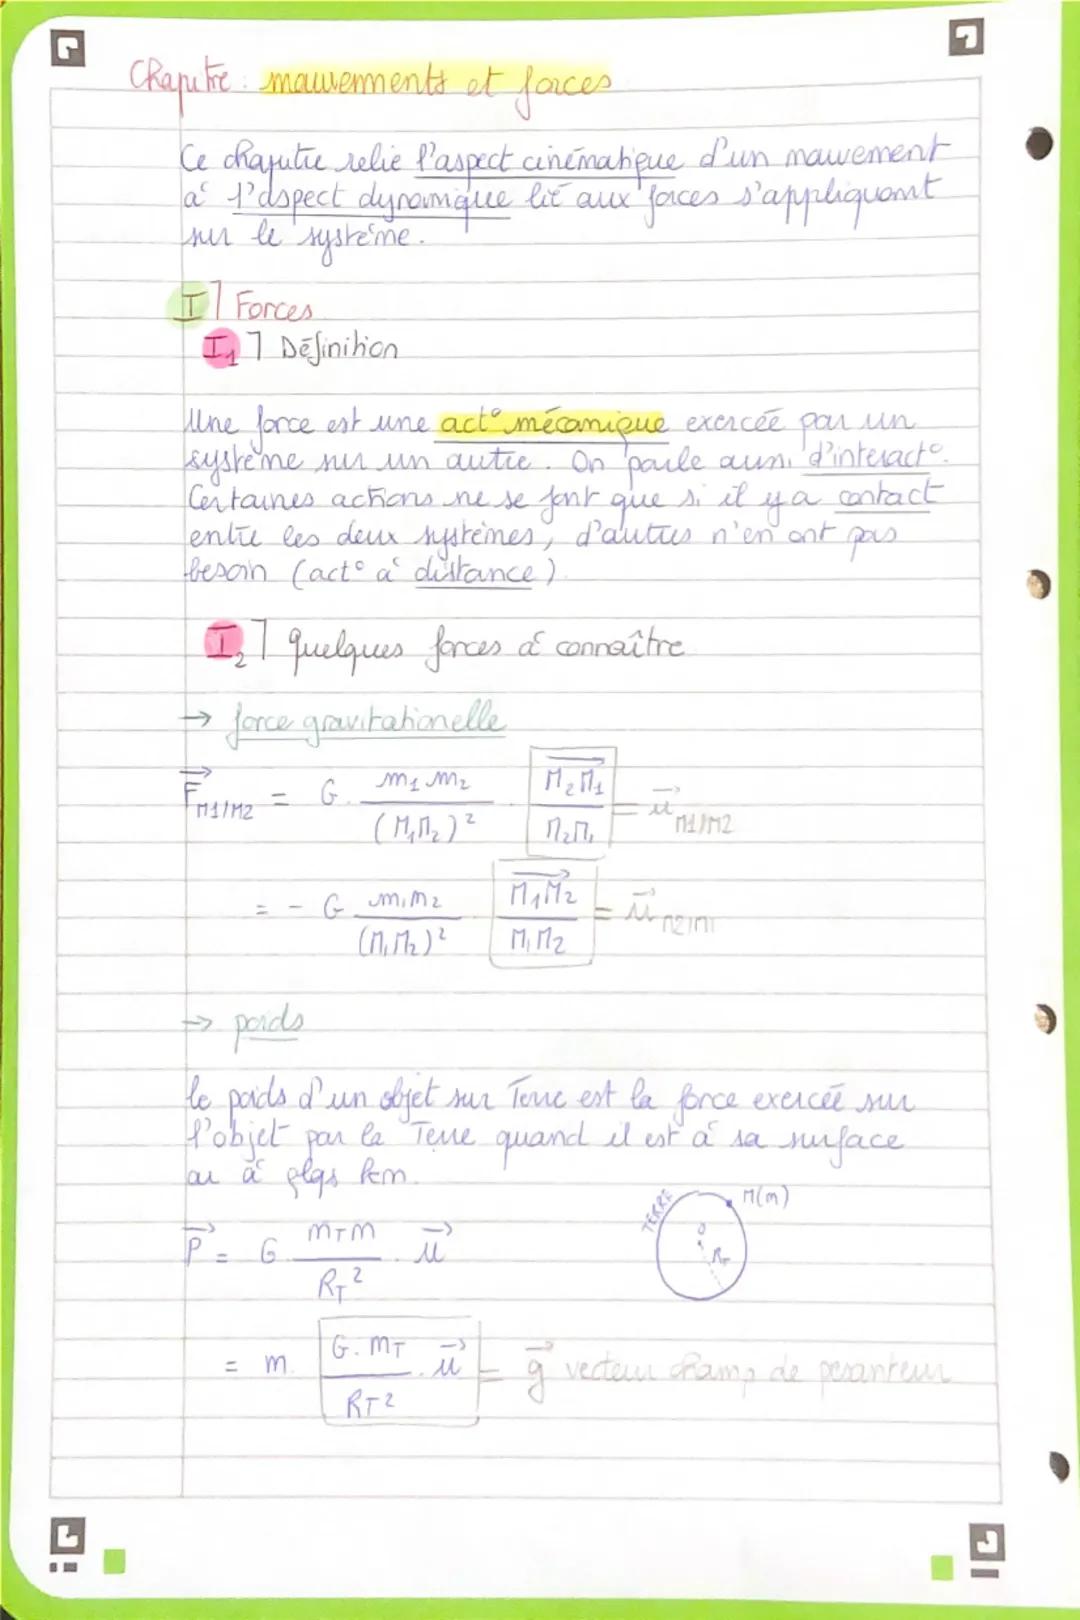 Chapitre : mouvements et forces
Ce chapitre relie l'aspect cinématique d'un mouvement
à l'aspect dynamique lié aux forces s'appliquant
sur le système.
I] Forces
I₁] Définition
Une force est une act° mécanique exercée par un
système sur un autre. On parle aussi d'interact°.
Certaines actions ne se font que si il y a contact
entre les deux systèmes, d'autres n'en ont pas
besoin (act° à distance)
I₂] quelques forces à connaître
→ force gravitationelle
F⃗ M1/M2 = G. m₁ m₂ / (M₁M₂)² . M₂M₁⃗ / M₂M₁ = u⃗ M1/M2
= - G m₁m₂ / (M₁M₂)² M₁M₂⃗ / M₁M₂ = u⃗ M2/M1
→ poids
le poids d'un objet sur Terre est la force exercée sur
l'objet par la Terre quand il est à sa surface
ou à qlqs km.
TERRE M(m)
O
R_T
P⃗ = G. m_T m / R_T² . u⃗
= m. G. m_T / R_T² . u⃗ = g⃗ vecteur champ de pesanteur